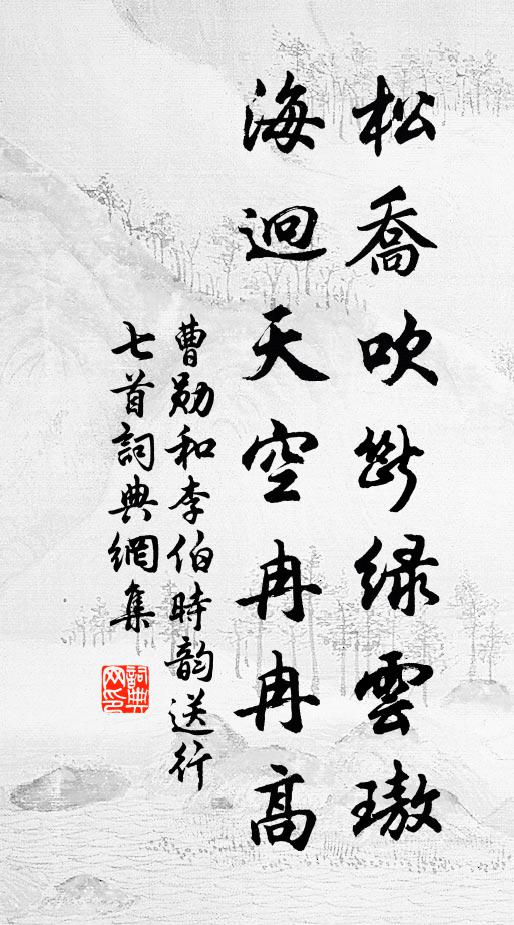 松喬吹斷綠雲璈
海迥天空冉冉高
曹勛和李伯時韵送行
七首詞典網集
詞典网印